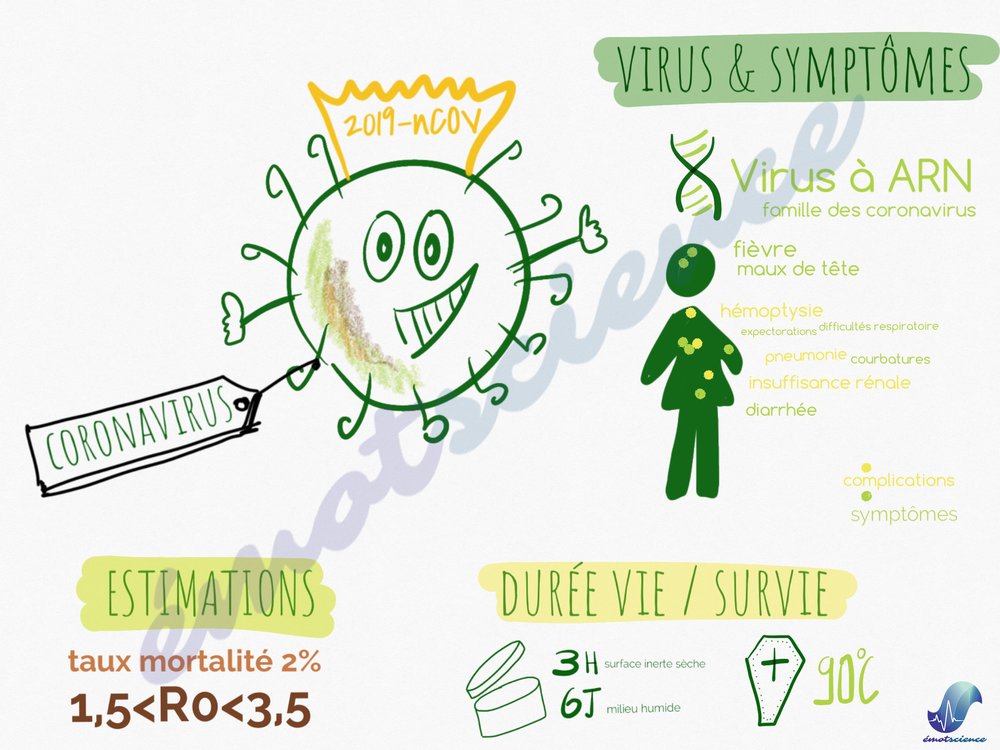 VIRUS & SYMPTÔMES
2019-nCOV
Virus à ARN
famille des coronavirus
fièvre
maux de tête
hémoptysie
expectorations difficultés respiratoire
pneumonie courbatures
insuffisance rénale
diarrhée
CORONAVIRUS
complications
symptômes
ESTIMATIONS
taux mortalité 2%
1,5<R0<3,5
DURÉE VIE / SURVIE
3H surface inerte sèche
6J milieu humide
90°C
émotscience
émotscience